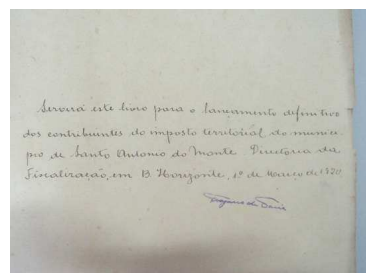 Servirá este livro para o lançamento definitivo
dos contribuintes do imposto territorial do munici-
pio de Santo Antonio do Monte. Directoria da
Fiscalização, em B. Horizonte, 1º de Março de 1920